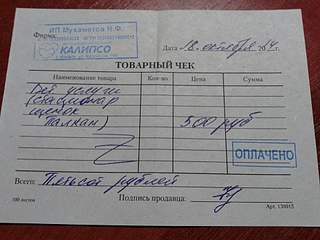 ИП Мухаметов Н.Ф.
КАЛИПСО
Фирма
Дата 18 октября 2014 г.
ТОВАРНЫЙ ЧЕК
Наименование товара Кол-во Цена Сумма
Вет услуги
(стационар
щенок
Палкан) 500 руб
ОПЛАЧЕНО
Всего: Пятьсот рублей
Подпись продавца:
100 листов Арт. 130915